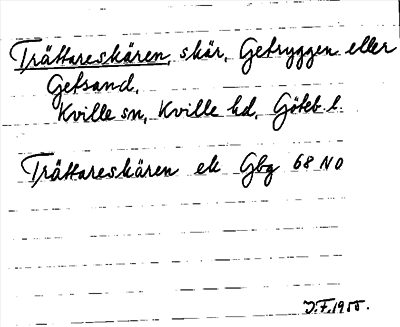 Trättareskären, skär, Getryggen eller
Getsand,
Kville sn, Kville hd, Göteb. l.
Trättareskären ek Gbg 68 NO
J.F. 1955.